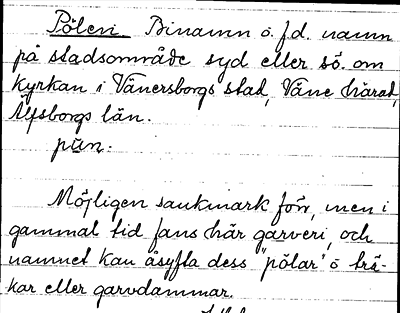 Pölen Binamn o. f.d. namn
på stadsområde syd eller sö. om
Kyrkan i Vänersborgs stad, Väne härad,
Älfsborgs län.
pœ̄n.
Möjligen sankmark förr, men i
gammal tid fans här garveri, och
namnet kan åsyfta dess "pölar" o brä-
kar eller garvdammar.